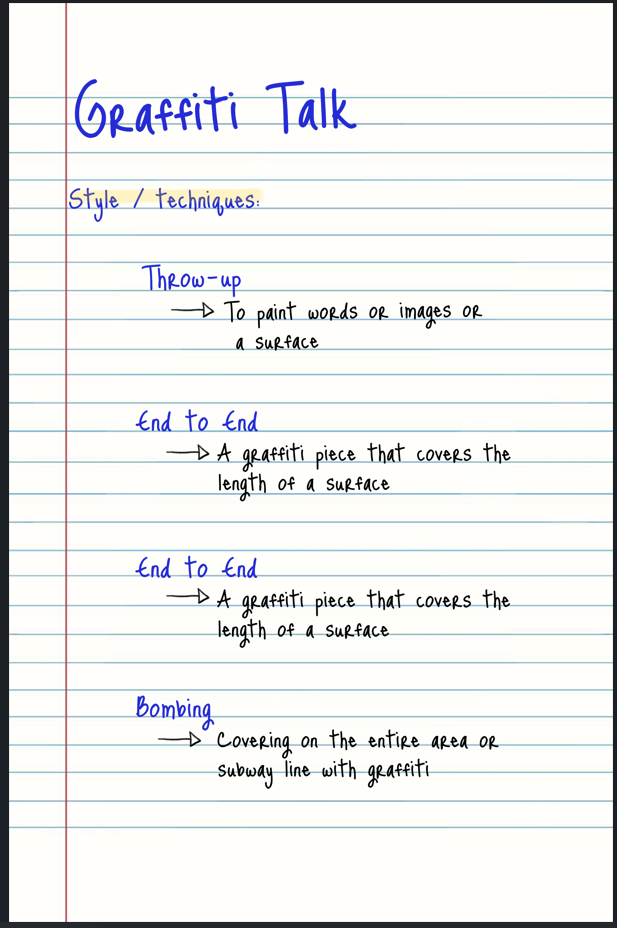 Graffiti Talk
Style / techniques:
Throw-up
To paint words or images or
a surface
End to End
A graffiti piece that covers the
length of a surface
End to End
A graffiti piece that covers the
length of a surface
Bombing
Covering on the entire area or
subway line with graffiti